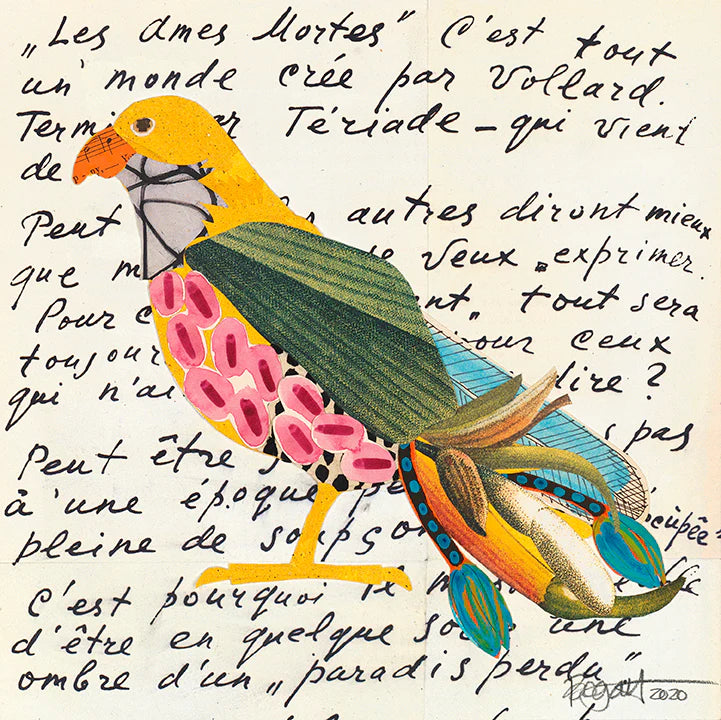 „Les ames Mortes" C'est tout
un monde crée par Vollard.
Termi er Tériade – qui vient
de
Peut autres diront mieux
que m veux „exprimer.
Pour c ent„ tout sera
toujour our ceux
qui n'a dire?
s pas
Peut être
à une époque pe
pleine de soupço cupée
C'est pourquoi il m
d'être en quelque so une
ombre d'un „paradis perdu„
2020